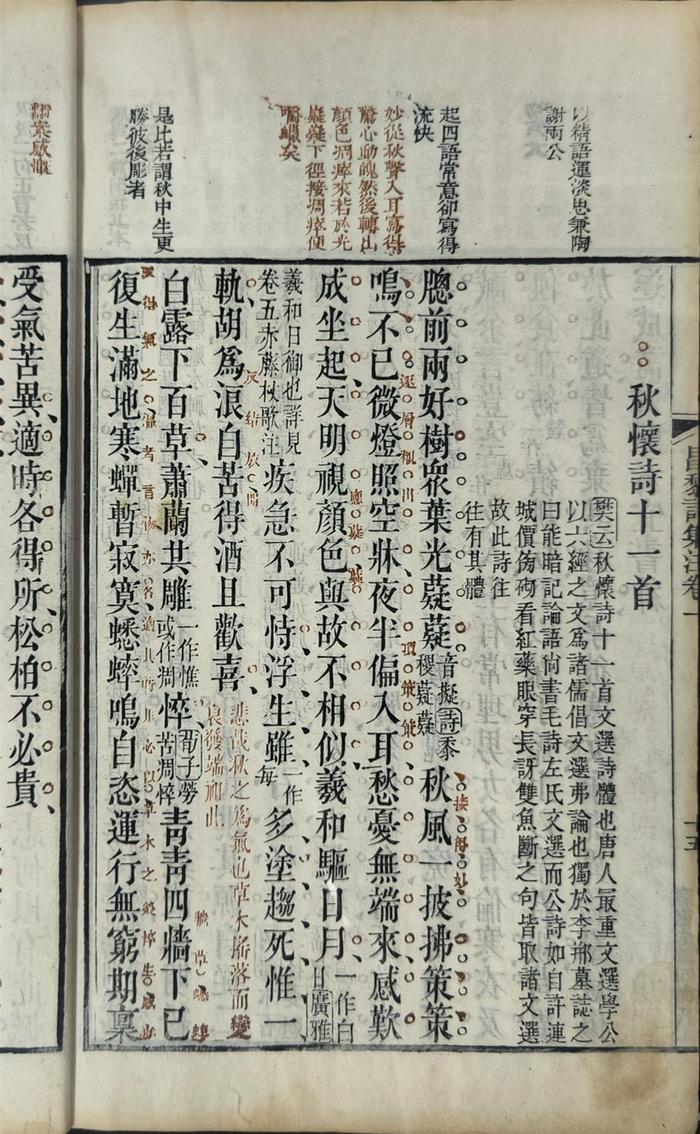 以精語運淡思兼陶
謝兩公
起四語常意卻寫得
流快
妙從秋聲入耳寫得
驚心動魄然後轉出
顏色凋瘁來若於光
薿薿下徑接凋瘁便
嚼蠟矣
是比若謂秋中生更
勝彼後彫者
翻案感慨
秋懷詩十一首
樊云秋懷詩十一首文選詩體也唐人最重文選學公
以六經之文爲諸儒倡文選弗論也獨於李邢墓誌之
曰能暗記論語尙書毛詩左氏文選而公詩如自許連
城價傍砌看紅藥眼穿長訝雙魚斷之句皆取諸文選
故此詩往
往有其體
牕前兩好樹衆葉光薿薿音擬詩黍稷薿薿秋風一披拂策策
鳴不已微燈照空牀夜半偏入耳愁憂無端來感歎
成坐起天明視顏色與故不相似羲和驅日月一作白日廣雅
羲和日御也詳見卷五赤藤杖歌注疾急不可恃浮生雖一作每多塗趨死惟一
軌胡爲浪自苦得酒且歡喜
悲哉秋之爲氣也草木搖落而變
衰發端祖此
白露下百草蕭蘭共雕一作憔或作凋悴荀子勞苦凋悴靑靑四牆下已
復生滿地寒蟬暫寂寞蟋蟀鳴自恣運行無窮期稟
受氣苦異適時各得所松柏不必貴
逐層徹出
應薿薿
頂策策
接得妙
反結放開